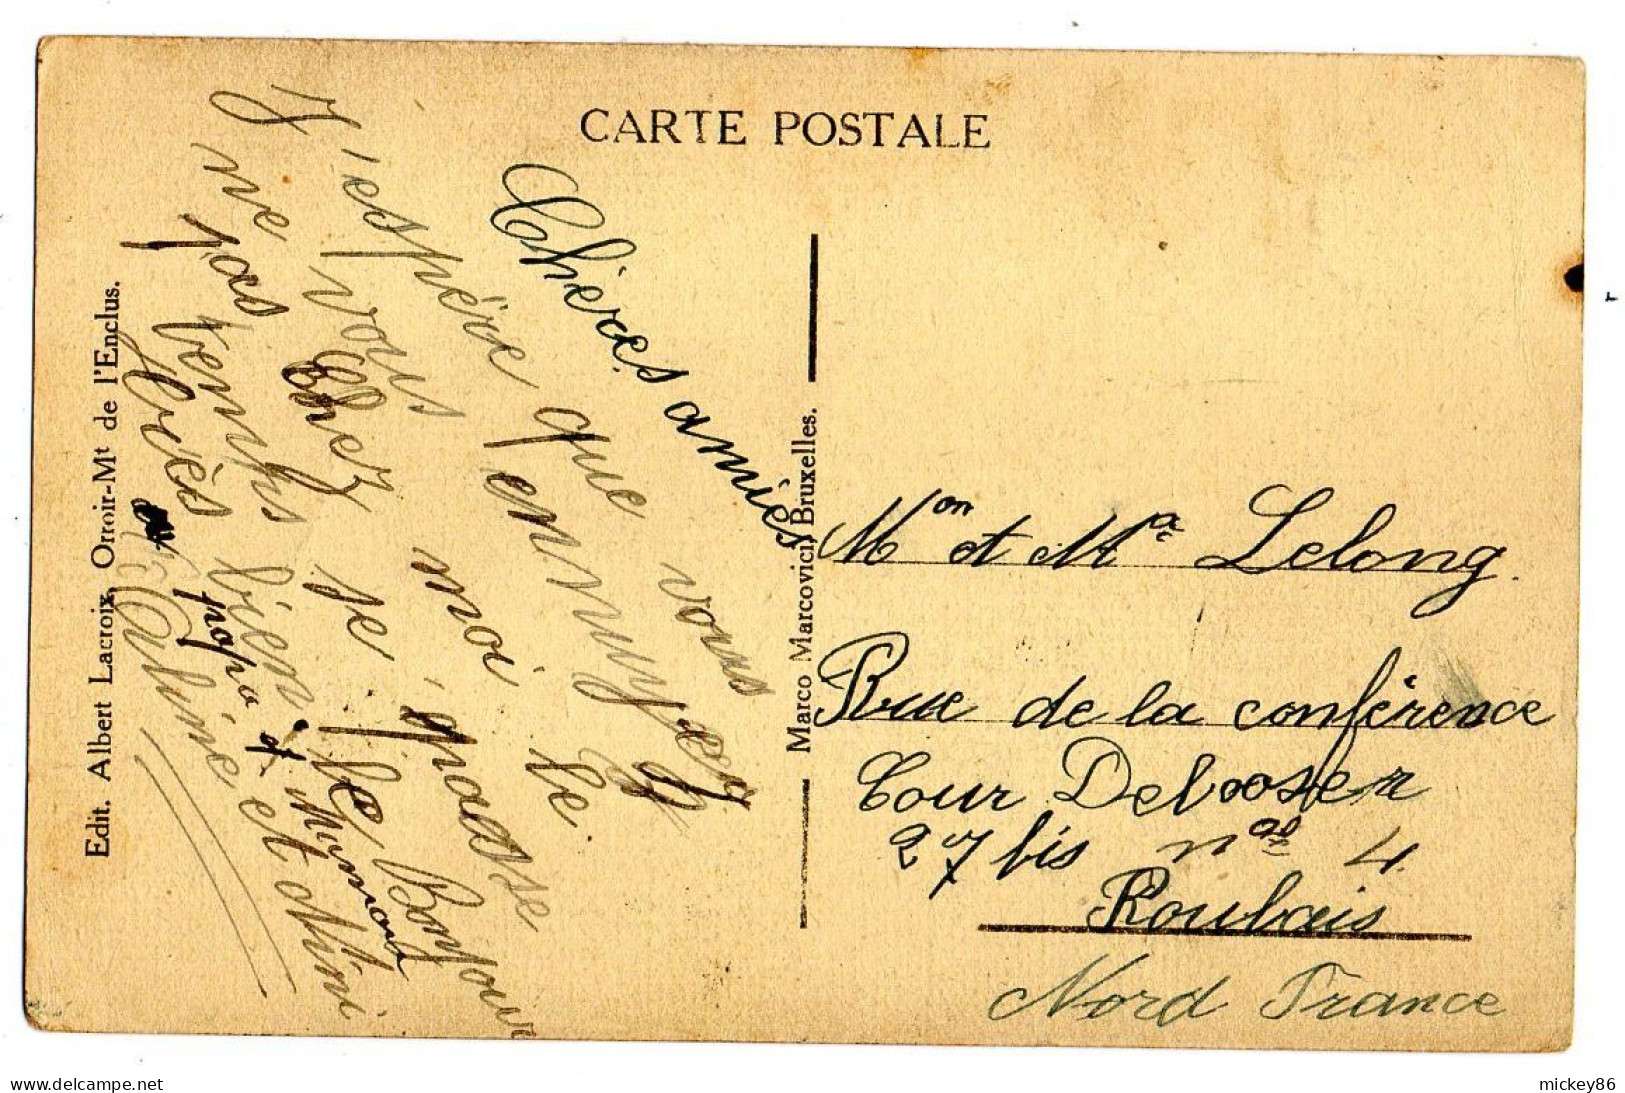 CARTE POSTALE
Chères amiès
J'espère que vous
ne vous ennuyez
pas Chez moi le
temps je passe
très bien. le Bonjour
papa et
Aline et Mimi
Edit. Albert Lacroix, Orroir-Mt de l'Enclus.
Marco Marcovici, Bruxelles.
Mon et Ma Lelong.
Rue de la conférence
Cour Delooser
27 bis n° 4.
Roubais
Nord France
delcampe.net
mickey86